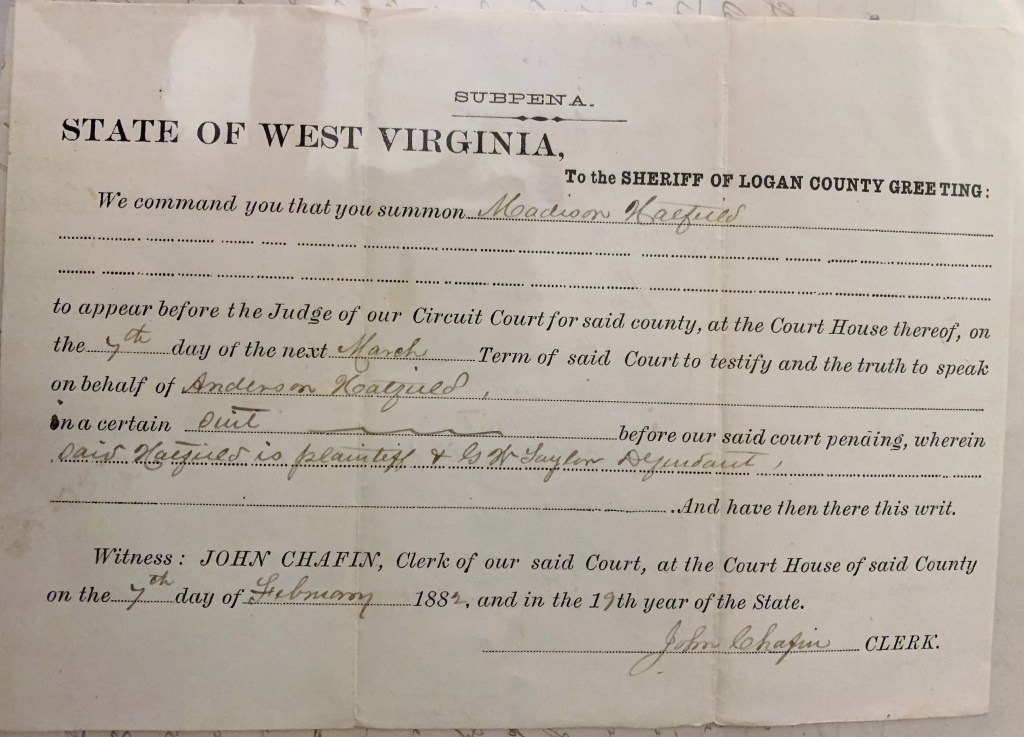 SUBPENA.
STATE OF WEST VIRGINIA,
To the SHERIFF OF LOGAN COUNTY GREETING:
We command you that you summon Madison Hatfield
to appear before the Judge of our Circuit Court for said county, at the Court House thereof, on
the 7th day of the next March Term of said Court to testify and the truth to speak
on behalf of Anderson Hatfield,
in a certain suit before our said court pending, wherein
said Hatfield is plaintiff & G W Taylor Defendant,
And have then there this writ.
Witness: JOHN CHAFIN, Clerk of our said Court, at the Court House of said County
on the 7th day of February 1882, and in the 19th year of the State.
John Chafin CLERK.